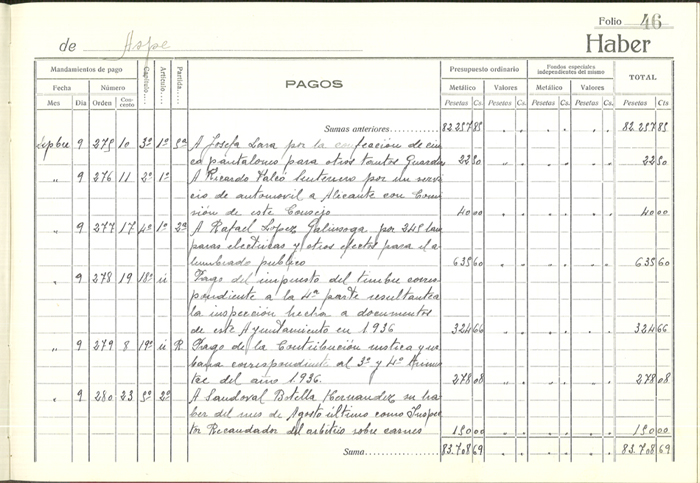 Folio 46
de Aspe Haber
Mandamientos de pago Capítulo.... Artículo.... Partida.... PAGOS Presupuesto ordinario Fondos especiales independientes del mismo TOTAL
Fecha Número Metálico Valores Metálico Valores
Mes Día Orden Concepto Pesetas Cs. Pesetas Cs. Pesetas Cs. Pesetas Cs. Pesetas Cts
Sumas anteriores 82.257 85 82.257 85
Sepbre 9 275 10 3º 1º 5ª A Josefa Lara por la confeccion de cin
co pantalones para otros tantos Guardas 22 50 22 50
" 9 276 11 2º 1º A Ricardo Falcó Senternos por un servi
cio de automovil a Alicante con Comi
sión de este Consejo 40 00 40 00
" 9 277 17 4º 1º 2ª A Rafael López Galiussoga por 248 lam
paras electricas y otros efectos para el a
lumbrado publico 635 60 635 60
" 9 278 19 18º ú Pago del impuesto del timbre corres
pondiente a la 4ª parte resultante a
la inspección hecha a documentos
de este Ayuntamiento en 1936 324 66 324 66
" 9 279 8 19º ú R. Pago de la Contribución rustica y ur
bana correspondiente al 3º y 4º trimes
tre del año 1936. 278 08 278 08
" 9 280 23 5º 2º A Sandoval Botella Hernandez su ha
ber del mes de Agosto último como Inspec
tor Recaudador del arbitrio sobre carnes 150 00 150 00
Suma 83.708 69 83.708 69